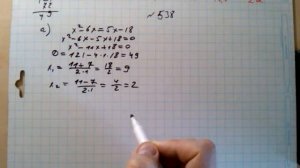 №538
а) x²-6x=5x-18
x²-6x-5x+18=0
x²-11x+18=0
D=121-4·1·18=49
x₁=(11+7)/(2·1)=18/2=9
x₂=(11-7)/(2·1)=4/2=2